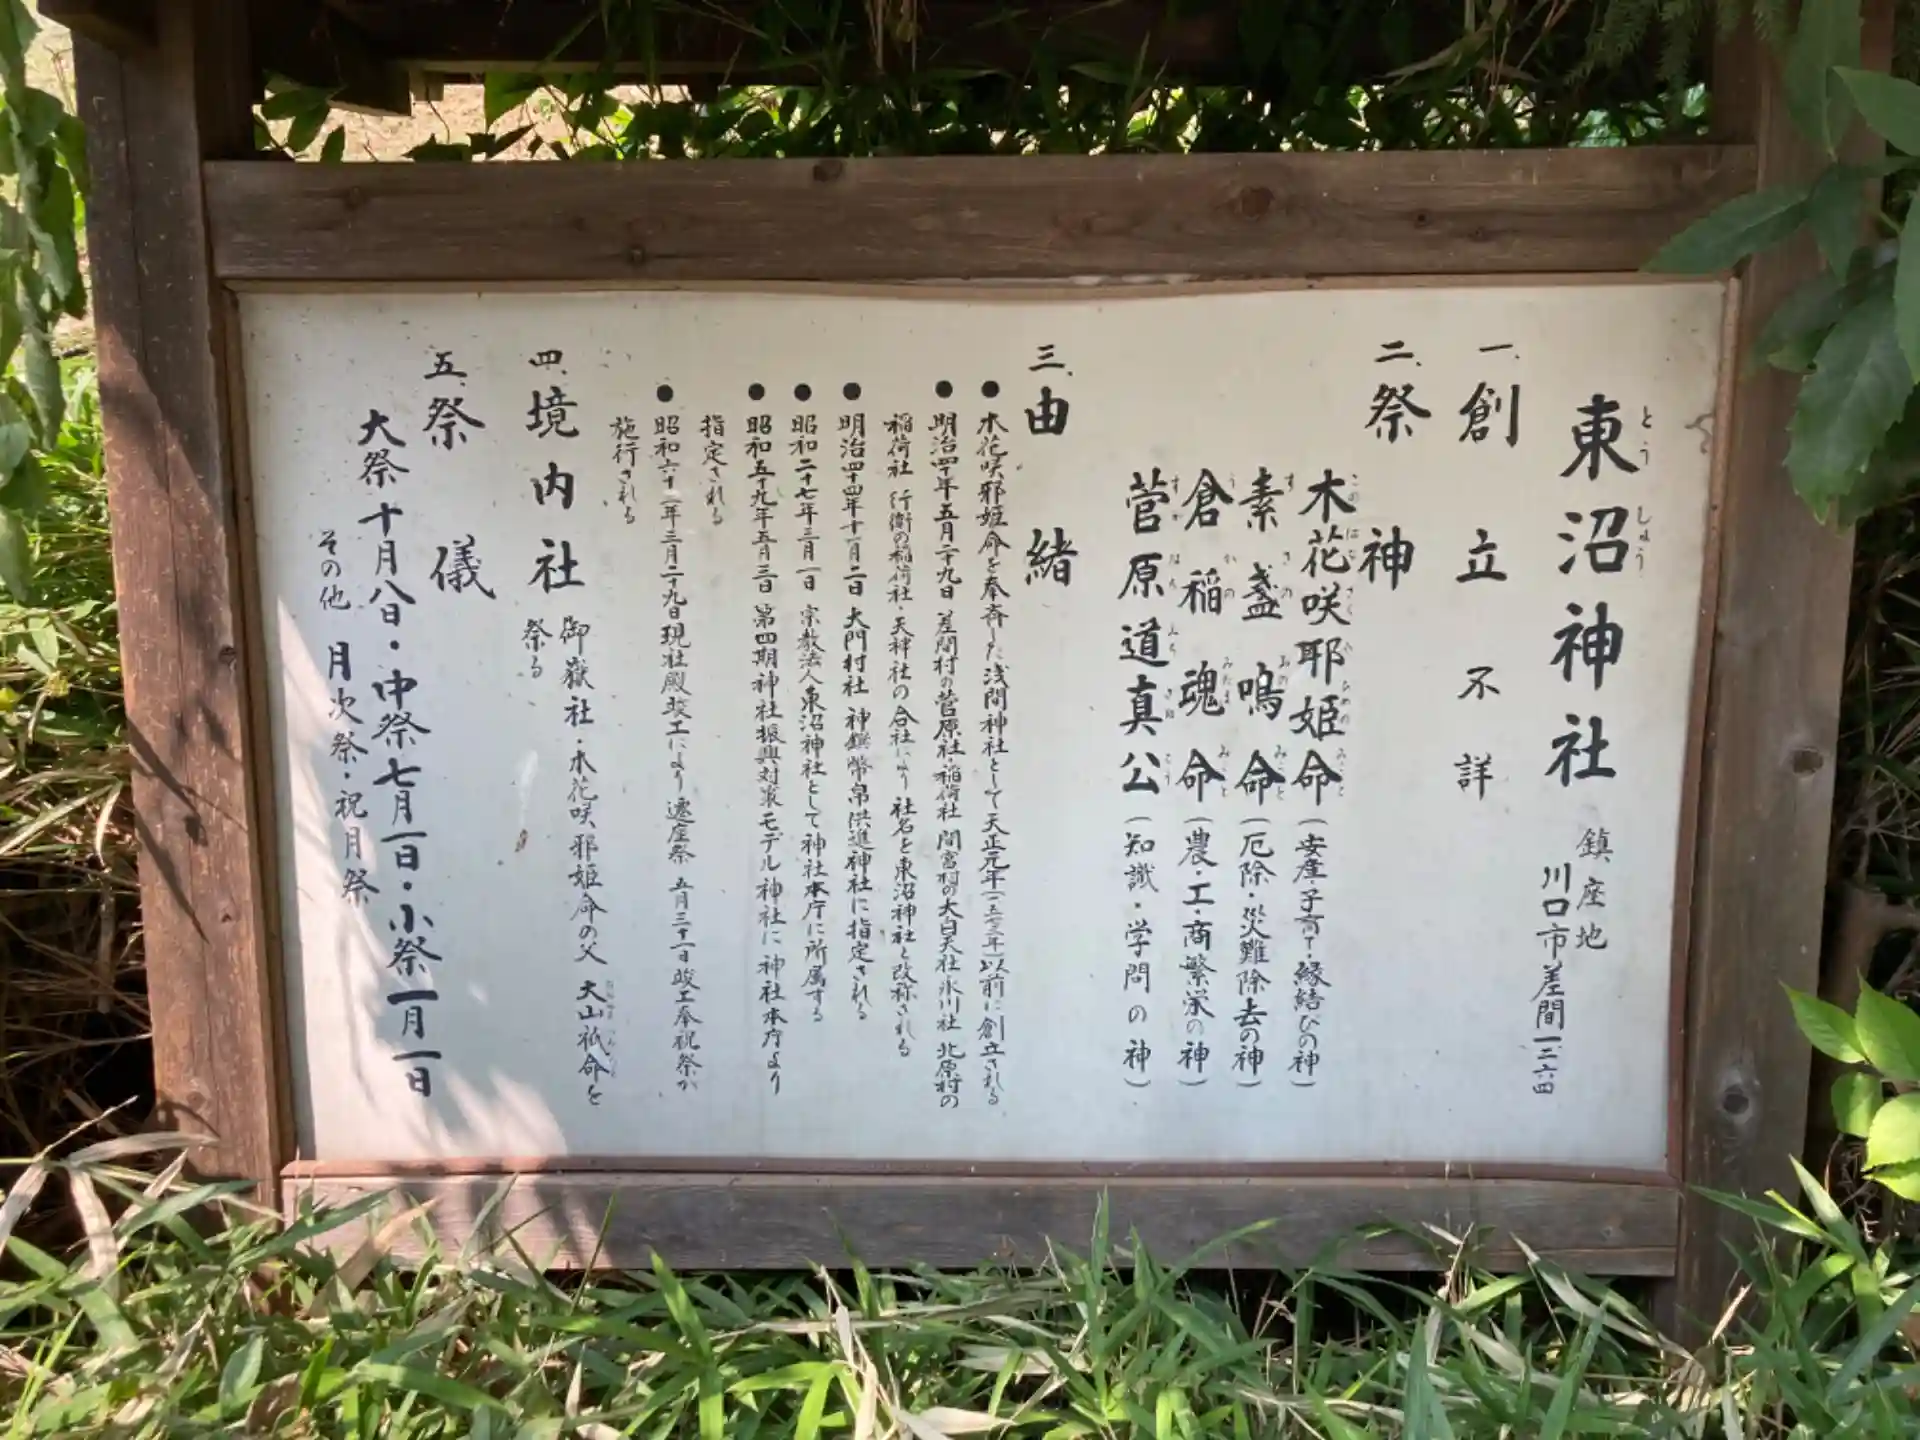 東沼神社
とうしょう
鎮座地
川口市差間一三六四
一、創立不詳
二、祭神
木花咲耶姫命(安産・子育て・縁結びの神)
このはなさくやひめのみこと
素盞嗚命(厄除・災難除去の神)
すさのおのみこと
倉稲魂命(農・工・商繁栄の神)
うかのみたまみこと
菅原道真公(知識・学問の神)
すがはらみちざねこう
三、由緒
●木花咲邪姫命を奉斉した浅間神社として天正元年(一五七三年)以前に創立される
●明治四十年五月二十九日 差間村の菅原社・稲荷社 間宮村の大白天社氷川社 北原村の
稲荷社 行衛の稲荷社・天神社の合社により社名を東沼神社と改称される
●明治四十四年十一月二日 大門村社 神饌幣帛供進神社に指定される
●昭和二十七年三月一日 宗教法人東沼神社として神社本庁に所属する
●昭和五十九年五月三日 第四期神社振興対策モデル神社に神社本庁より
指定される
●昭和六十二年三月二十九日現社殿竣工により遷座祭 五月三十一日竣工奉祝祭が
施行される
四、境内社 御嶽社・木花咲邪姫命の父 大山祇命を
祭る
五、祭儀
大祭十月八日・中祭七月一日・小祭一月一日
その他 月次祭・祝月祭